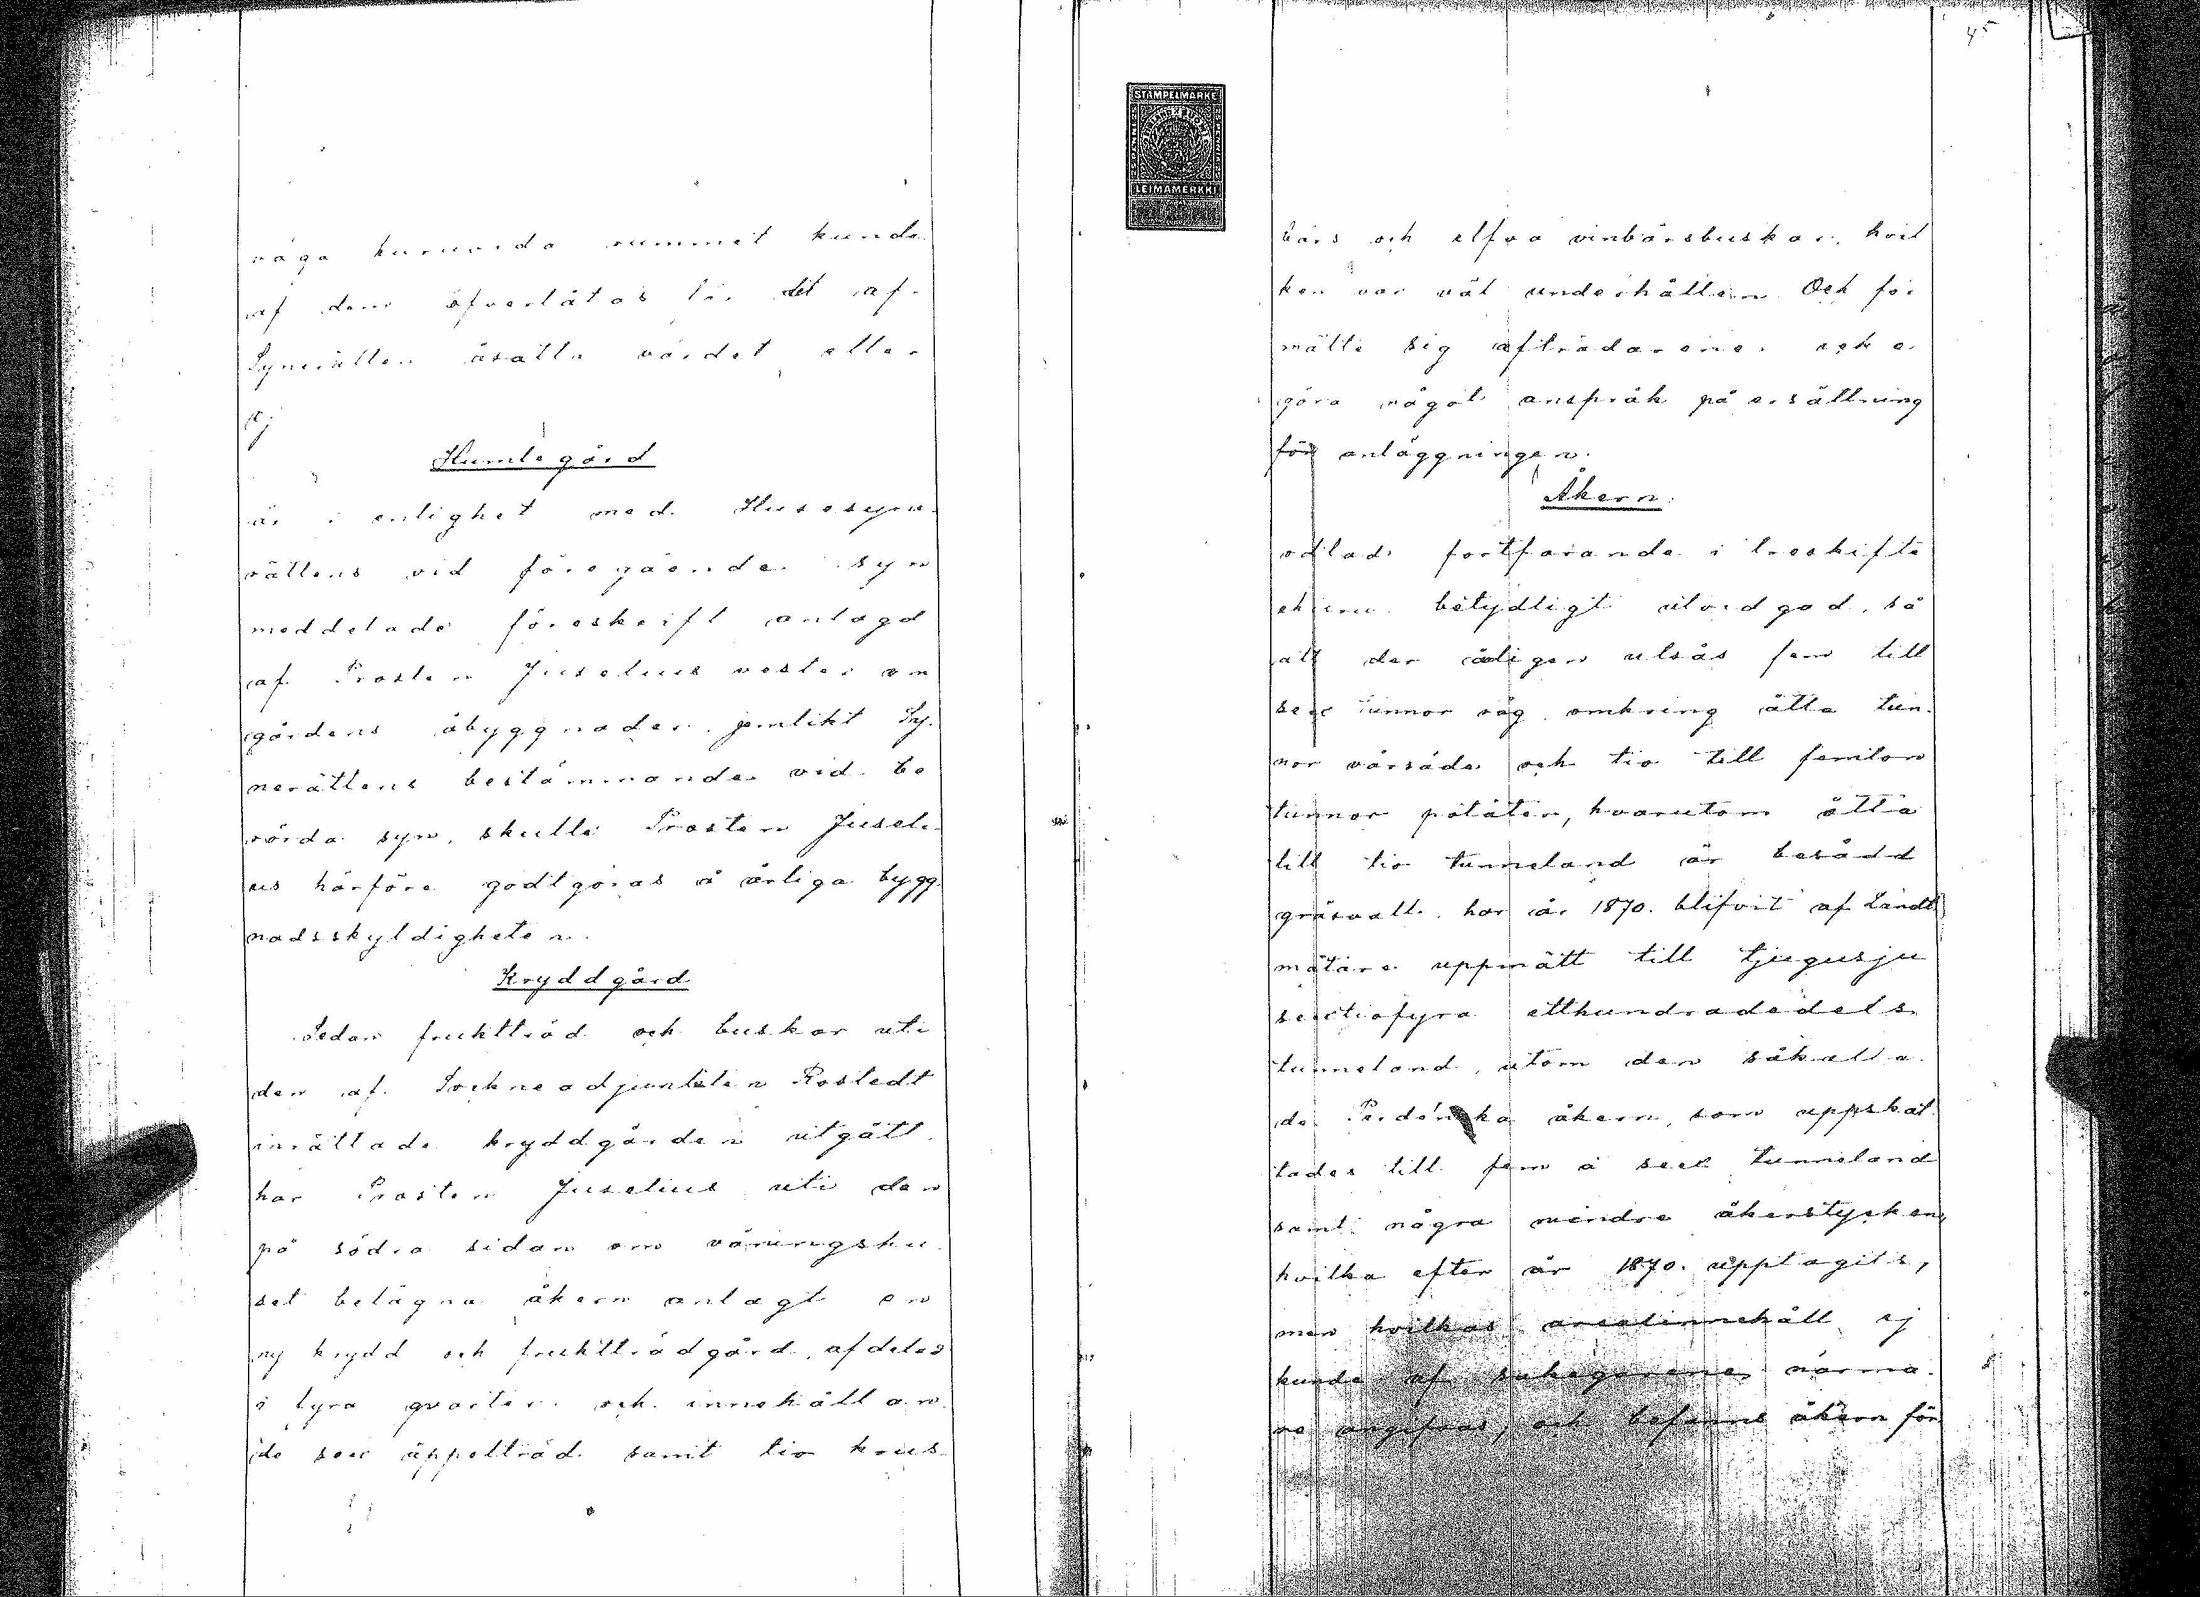 råga huruvida rummet kunde
af dem öfverlåtas för det af
Synerätten åsatta värdet eller
ej
Humlegård
är i enlighet med Husesyns
rättens vid föregående syn
meddelade föreskrift anlagd
af Prosten Juselius vester om
gårdens åbyggnader, jemlikt Sy-
nerättens bestämmande vid be
rörda syn, skulle Prosten Juseli-
us härföre godtgöras å årliga bygg
nadsskyldigheten.
Kryddgård
Sedan fruktträd och buskar uti
den af Sockneadjunkten Rostedt
inrättade kryddgården utgått,
har Prosten Juselius uti den
på södra sidan om våningshu-
set belägna åkern anlagt en
ny krydd och fruktträdgård, afdelad
i fyra qvarter och innehållan
de sex äppelträd samt tio krus-
45
STÄMPELMÄRKE
LEIMAMERKKI
bärs och elfva vinbärsbuskar, hvil
ken var väl underhållen. Och för
mälte sig afträdarene icke
göra något anspråk på ersättning
för anläggningen.
Åkern
odlad fortfarande i treskifte
betydligt utvidgad, så
att der årligen utsås fem till
sex tunnor råg, omkring åtta tun-
nor vårsäde och tio till femton
tunnor potäter, hvarutom åtta
till tio tunneland är besådd
gräsvall, har år 1870. blifvit af Landt
mätare uppmätt till tjugusju
sextiofyra etthundradedels
tunneland, utom den såkalla-
de åkern, som uppskat
tades till fem à sex tunneland
samt några mindre åkerstycken,
hvilka efter år 1870. upptagits,
men hvilkas arealinnehåll ej
kunde af sakegarene närma-
re angifvas, och befanns åkern för